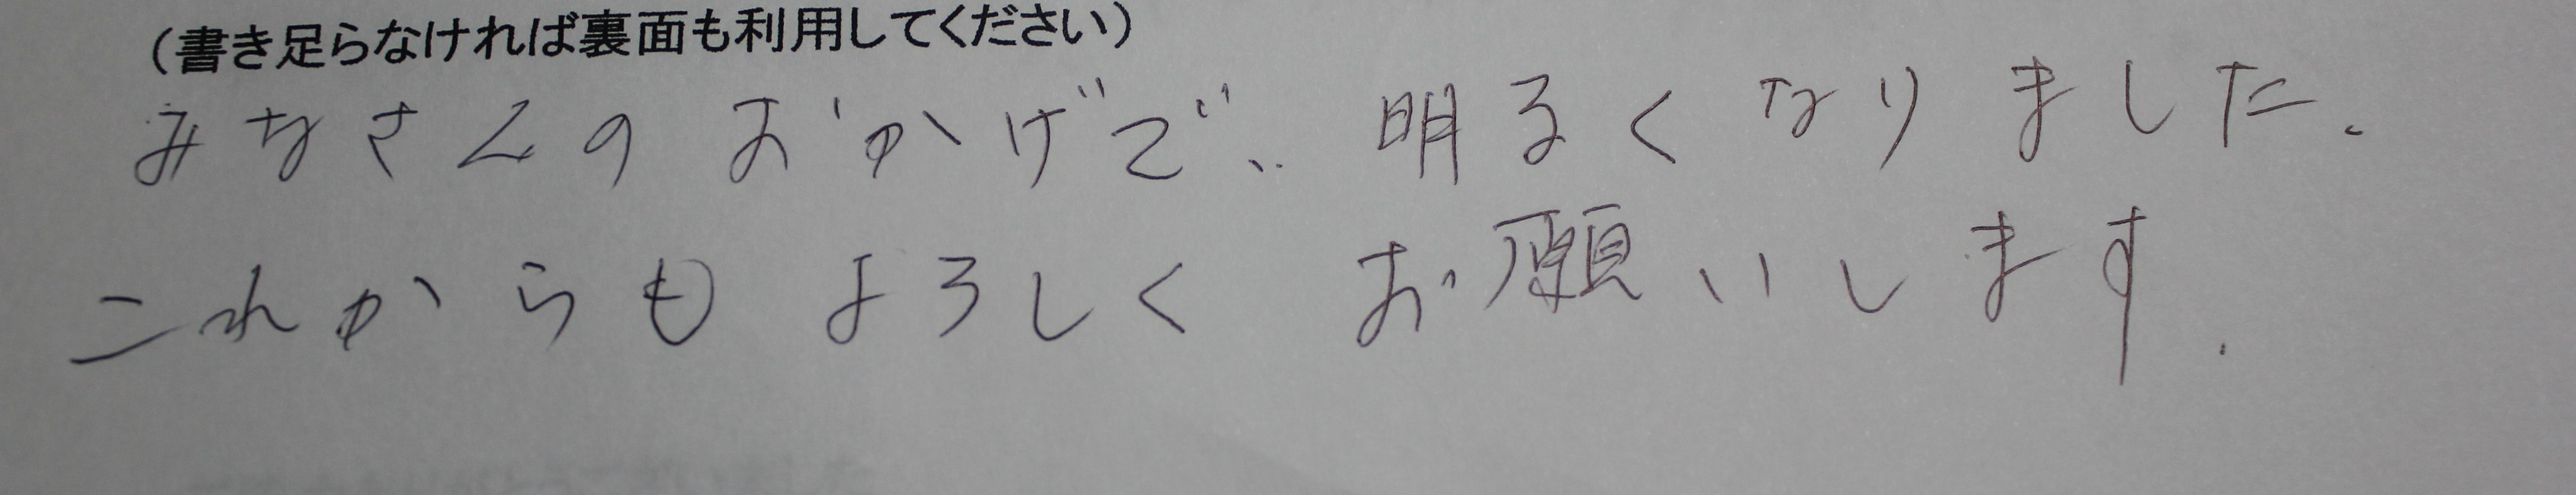 （書き足らなければ裏面も利用してください）
みなさんのおかげで、明るくなりました。
これからもよろしくお願いします.